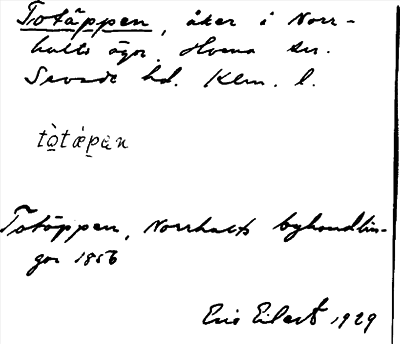 Totäppen, åker i Norr-
hults ägor. Horna sn.
Sevede hd. Klm. l.
tòtǽpàn
Totäppen, Norrhults byhandlin-
gar 1856
Eric Eilert 1929